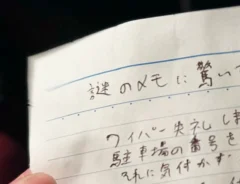 謎のメモに驚い
ワイパー失礼しま
駐車場の番号を
それに気付かず